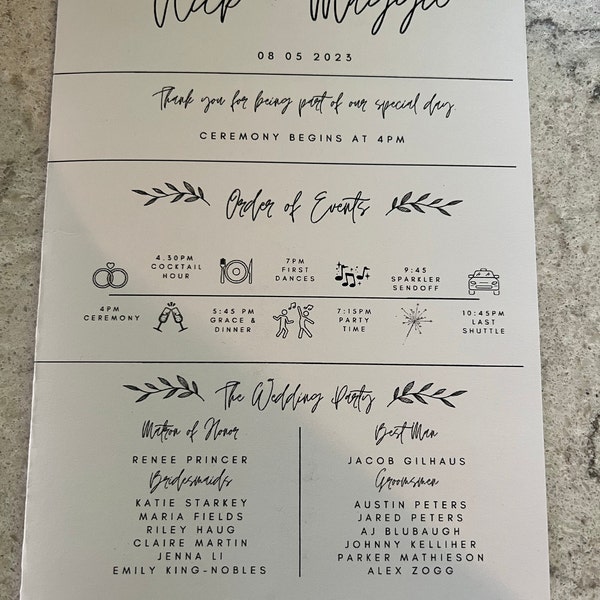 Nick Maggie
08 05 2023
Thank you for being part of our special day.
CEREMONY BEGINS AT 4PM
Order of Events
4PM
CEREMONY
4.30PM
COCKTAIL
HOUR
5:45 PM
GRACE &
DINNER
7PM
FIRST
DANCES
7:15PM
PARTY
TIME
9:45
SPARKLER
SENDOFF
10:45PM
LAST
SHUTTLE
The Wedding Party
Matron of Honor
RENEE PRINCER
Bridesmaids
KATIE STARKEY
MARIA FIELDS
RILEY HAUG
CLAIRE MARTIN
JENNA LI
EMILY KING-NOBLES
Best Man
JACOB GILHAUS
Groomsmen
AUSTIN PETERS
JARED PETERS
AJ BLUBAUGH
JOHNNY KELLIHER
PARKER MATHIESON
ALEX ZOGG